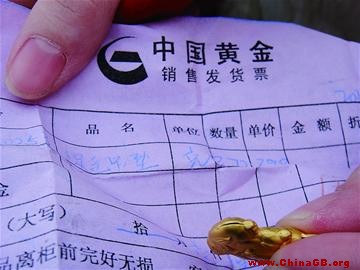 中国黄金
销售发货票
品名 单位 数量 单价 金额 折
金
(大写) 拾
品离柜前完好无损
www.ChinaGB.org